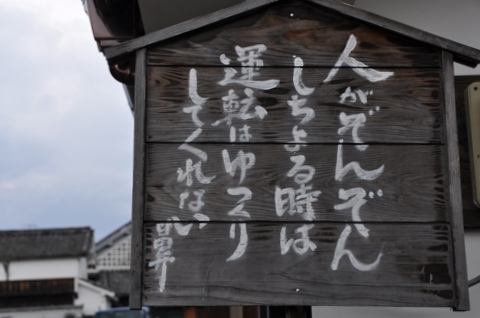 人がぞんぞん
しちょる時は
運転はゆっくり
してくれない